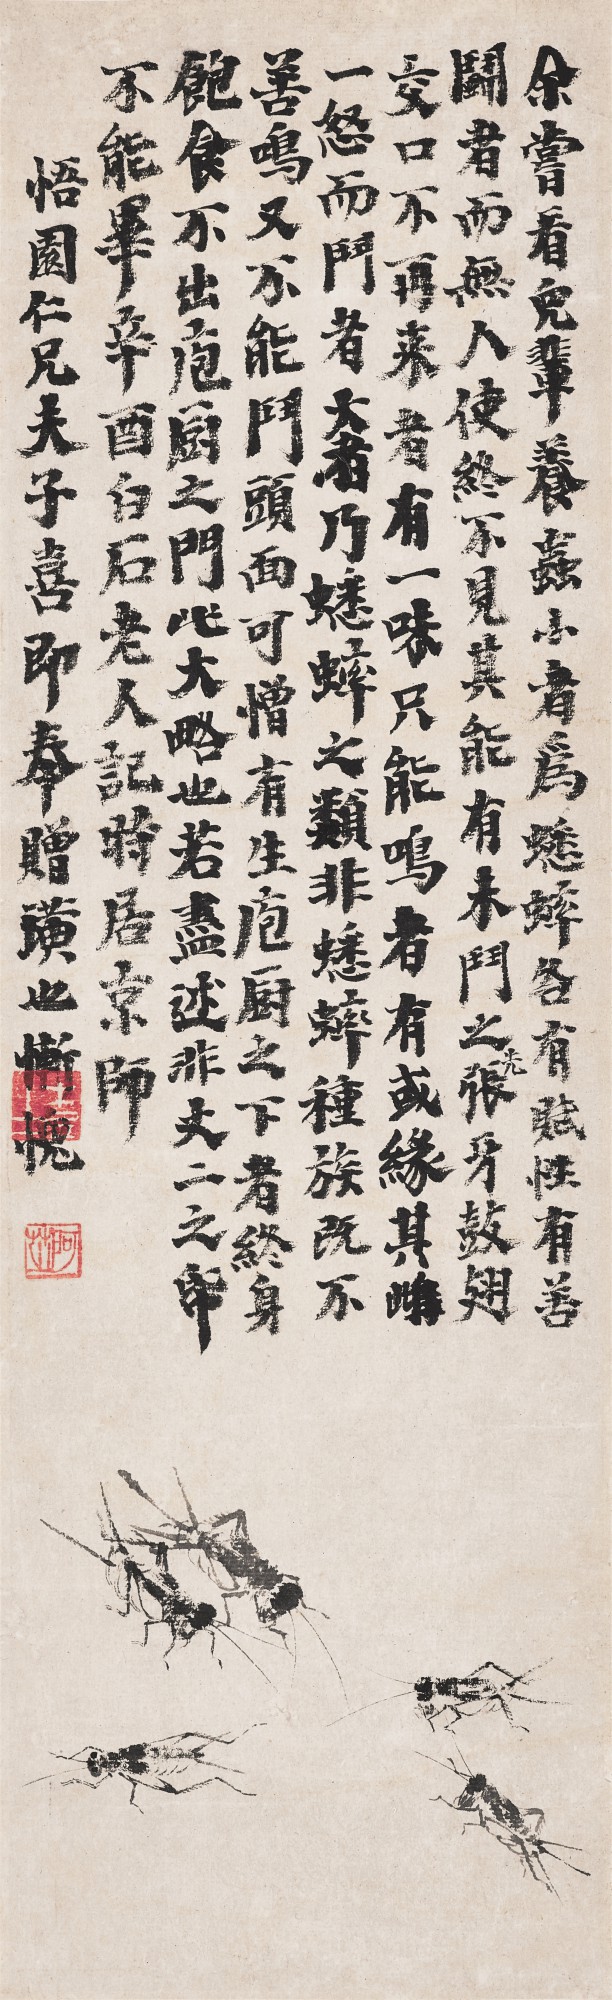 余嘗看兒輩養蟲小者爲蟋蟀各有賦性有善
鬭者而無人使終不見其能有未鬥之先張牙鼓翅
交口不再來者有一味只能鳴者有或緣其雌
一怒而鬥者大者乃蟋蟀之類非蟋蟀種族既不
善鳴又不能鬥頭面可憎有生庖厨之下者終身
飽食不出庖厨之門此大略也若盡述非丈二之帋
不能畢辛酉白石老人記時居京師
悟園仁兄夫子喜即奉贈璜也慚愧